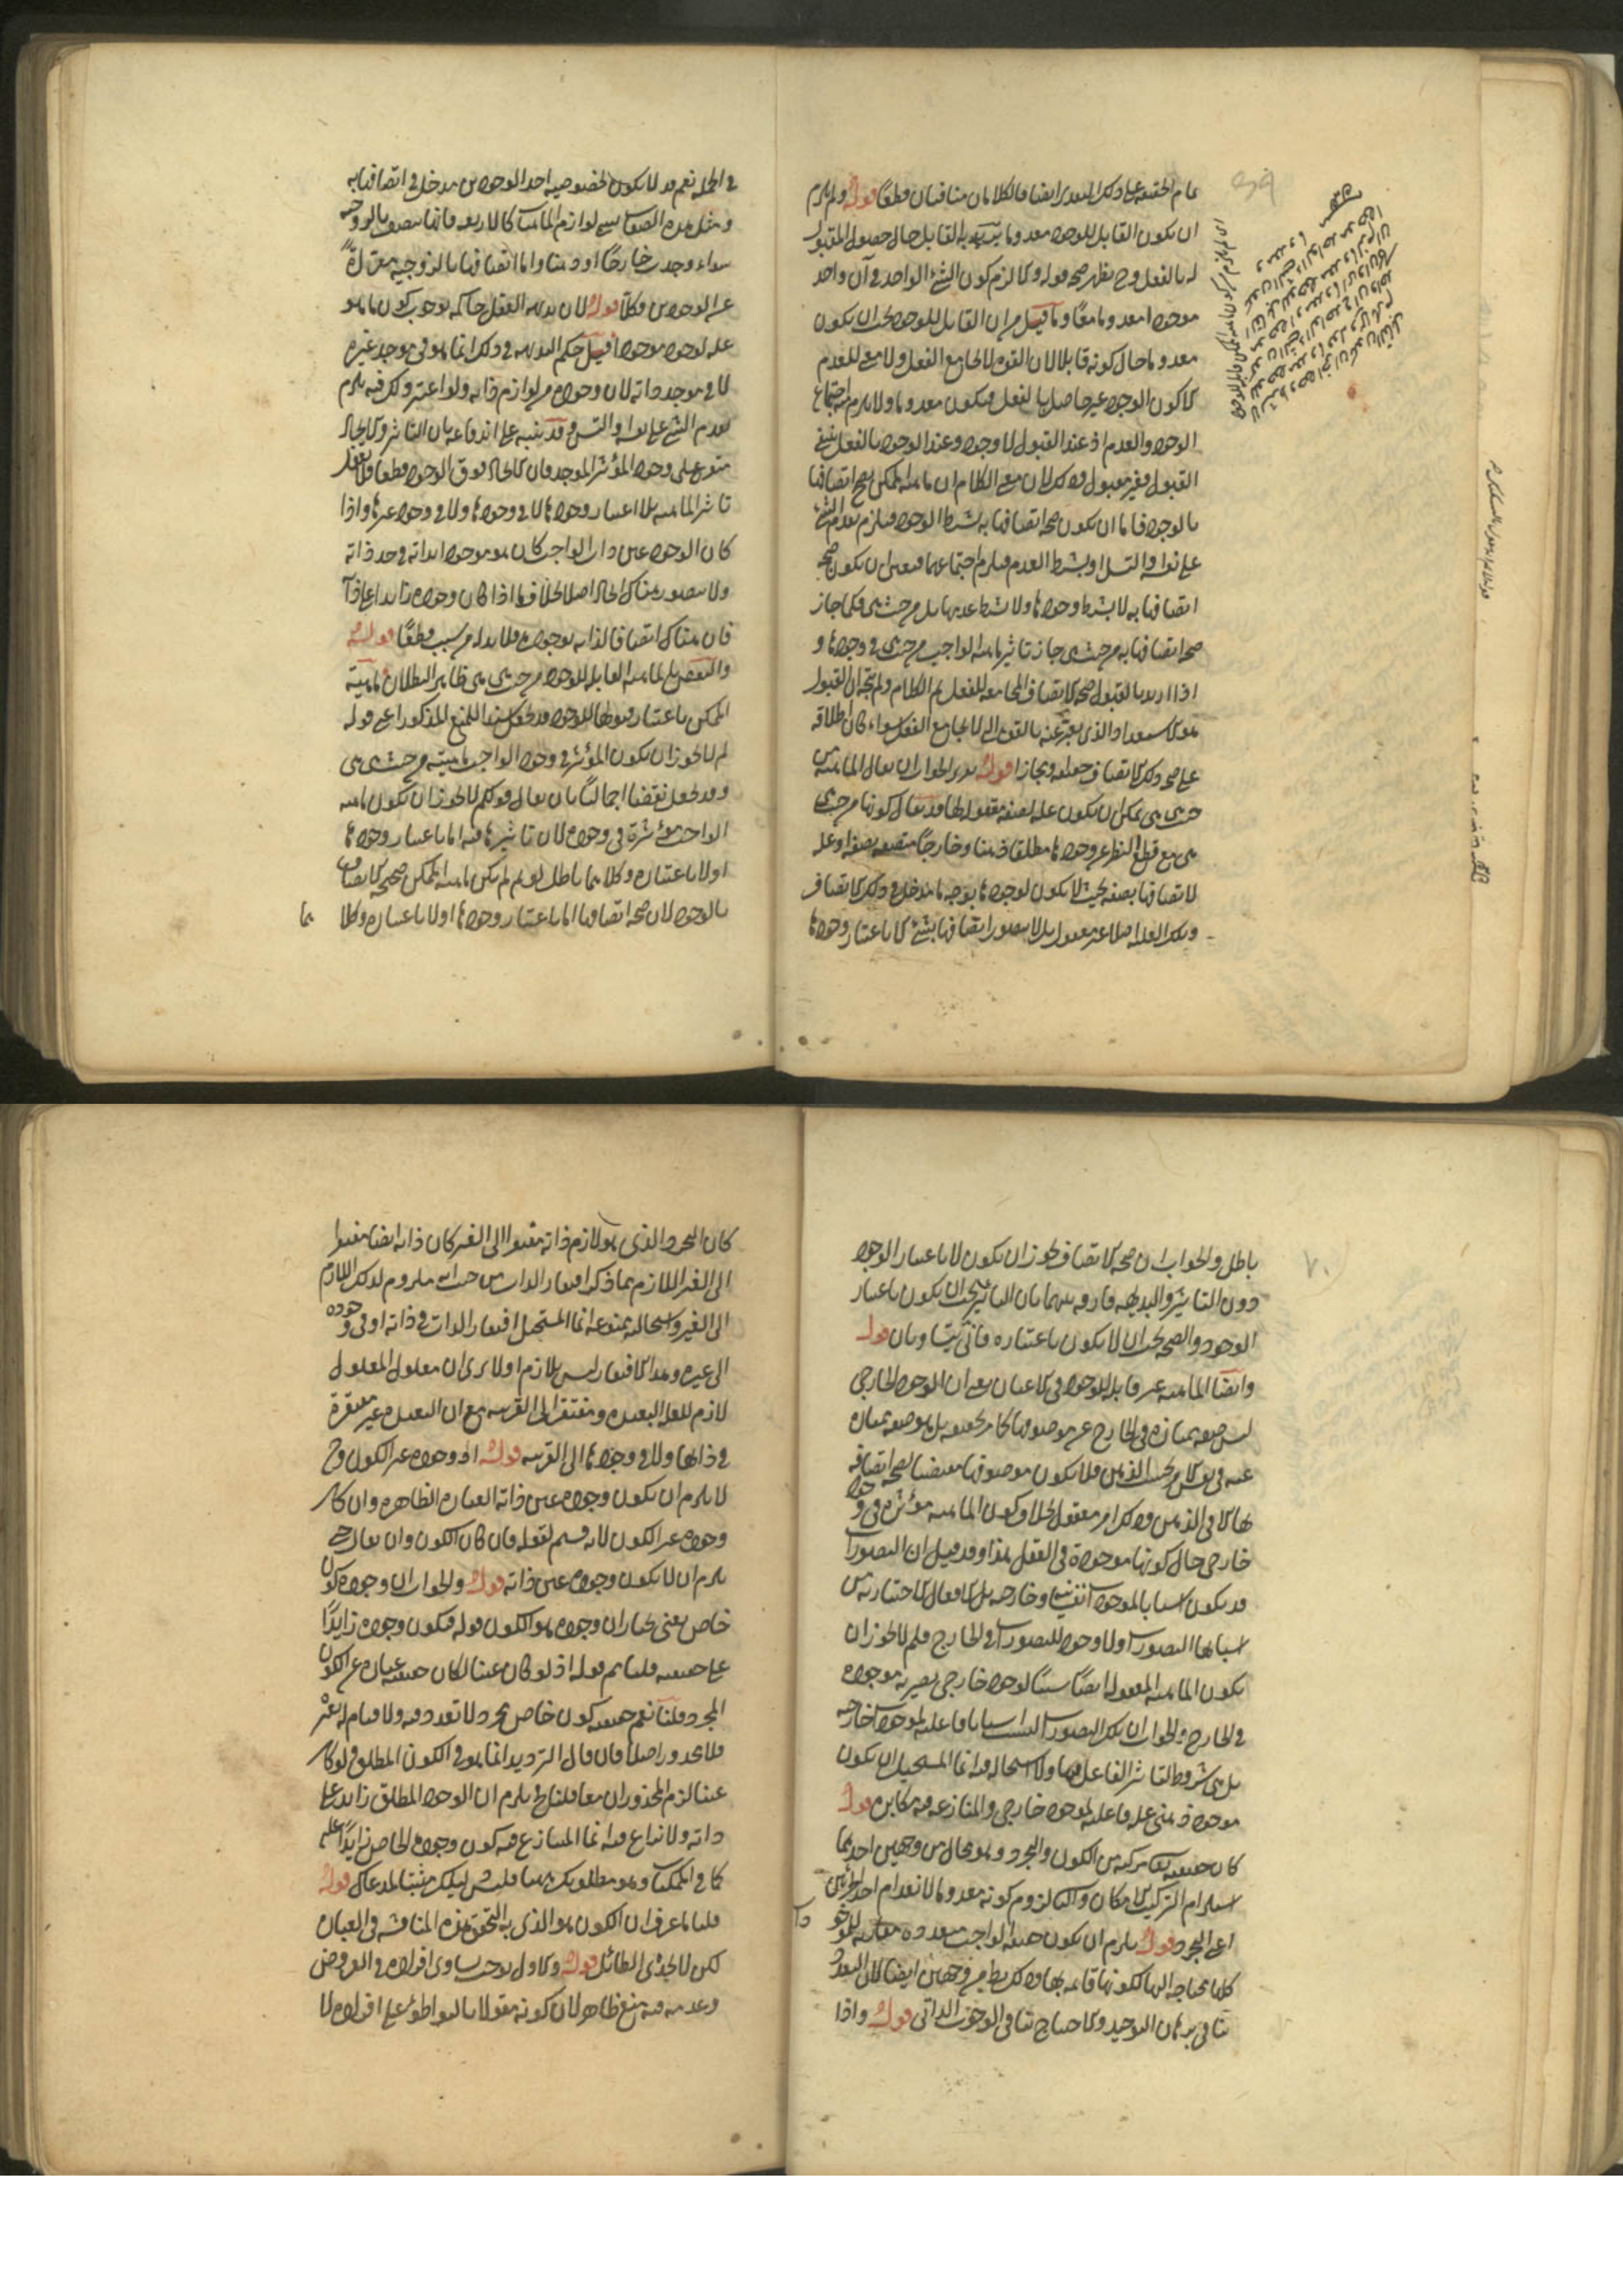 تمام الحقيقة على ذلك التقدير ايضا فالكلامان متنافيان قطعا قوله ولم يلزم
ان يكون القابل للوجود معدوما به القابل حال حصول المقبول
له بالفعل وح يظهر صحة قوله وكما لزم كون الشئ الواحد في آن واحد
موجودا معدوما معا وما قيل من ان القابل للوجود يجب ان يكون
معدوما حال كونه قابلا لان القوة لا تجامع الفعل ولا معنى للعدم
الا كون الوجود غير حاصل بالفعل فيكون معدوما ولا يلزم منه اجتماع
الوجود والعدم اذ عند القبول لا وجود وعند الوجود بالفعل ينتفي
القبول فغير مقبول وذلك لان معنى الكلام ان ماهية الممكن يصح اتصافها
بالوجود فاما ان يكون صحة اتصافها به بشرط الوجود فيلزم تقدم الشئ
على نفسه او التسلسل او بشرط العدم فيلزم اجتماعهما فتعين ان يكون صحة
اتصافها به لا بشرط وجودها ولا بشرط عدمها بل من حيث هي فكما جاز
صحة اتصافها به من حيث هي جاز تاثير ماهية الواجب من حيث هي في وجودها و
اذا اريد بالقبول صحة الاتصاف المجامعة للفعل تم الكلام ولم يتجه ان القبول
هو الاستعداد الذي يعبر عنه بالقوة التي لا تجامع الفعل سواء كان اطلاقه
على صحة ذلك الاتصاف حقيقة او مجازا قوله تقرير الجواب ان يقال الماهية من
حيث هي يمكن ان يكون علة لصفة معقولة لها قد يقال كونها من حيث
هي مع قطع النظر عن وجودها مطلقا ذهنا وخارجا متصفة بصفة او علة
لاتصافها بصفة بحيث لا يكون لوجودها بوجه ما مدخل في ذلك الاتصاف
وتلك العلية اصلا غير معقول بل لا يتصور اتصافها بشئ الا باعتبار وجودها
في الجملة نعم قد لا يكون لخصوصية احد الوجودين مدخل في اتصافها به
ومثل هذه الصفات تسمى لوازم الماهيات كالاربعة فانها متصف بالزوجية
سواء وجدت خارجا او ذهنا واما اتصافها بالزوجية معراة
عن الوجودين فكلا قوله لان بديهة العقل حاكمة بوجوب كون ما هو
علة لوجود موجودا قيل حكم البديهة في ذلك انما هو في موجد غيره
لا في موجد ذاته لان وجوده من لوازم ذاته ولو اعتبر ذلك فيه يلزم
تقدم الشئ على نفسه او التس وقد ينبه على اندفاعه بان التاثير والايجاد
متفرع على وجود المؤثر الموجد فان الايجاد فوق الوجود قطعا فلا يعقل
تاثير الماهية بلا اعتبار وجودها لا في وجودها ولا في وجود غيرها واذا
كان الوجود عين ذات الواجب كان هو موجودا بذاته في حد ذاته
ولا يتصور هناك ايجاد اصلا بخلاف ما اذا كان وجوده زائدا على ذاته
فان هناك اتصافا لذاته بوجوده فلا بد له من سبب قطعا قوله
والنقض بالماهية القابلة للوجود من حيث هي هي ظاهر البطلان ماهية
الممكن باعتبار قبولها للوجود قد تجعل سندا للمنع المذكور اعني قوله
لم لا يجوز ان يكون المؤثر في وجود الواجب ماهيته من حيث هي هي
وقد تجعل نقضا اجماليا بان يقال قولكم لا يجوز ان يكون ماهية
الواجب مؤثرة في وجوده لان تاثيرها فيه اما باعتبار وجودها
او لا باعتباره وكلاهما باطل لو تم لم يكن ماهية الممكن صحيحة الاتصاف
بالوجود لان صحة اتصافها اما باعتبار وجودها او لا باعتباره وكلا
هما
٧٠
باطل والجواب ان صحة الاتصاف يجوز ان يكون لا باعتبار الوجود
دون التاثير والبديهة فارقة بينهما بان التاثير يجب ان يكون باعتبار
الوجود والصحة يجب ان لا يكون باعتباره فانى يتساويان قوله
وايضا الماهية غير قابلة للوجود في الاعيان يعني ان الوجود الخارجي
ليس صفة ممتازة في الخارج عن موصوفها كما مر تحقيقه بل هو صفة ممتازة
عنه في نفس الامر بحسب الذهن فلا يكون موصوفها مقتضيا لصحة اتصافه
بها الا في الذهن وذلك امر معقول بخلاف كون الماهية مؤثرة في وجود
خارجي حال كونها موجودة في العقل هذا وقد قيل ان التصورات
قد يكون اسبابا لموجودات نفسية وخارجية بل الافعال الاختيارية من
اسبابها التصورات ولا وجود للتصورات في الخارج فلم لا يجوز ان
يكون الماهية المعقولة ايضا سببا لوجود خارجي يصير به موجودة
في الخارج والجواب ان تلك التصورات ليست اسبابا فاعلية لموجودات خارجية
بل هي شروط لتاثير الفاعل فيها ولا استحالة فيه انما المستحيل ان يكون
موجود ذهني علة فاعلية لموجود خارجي والمنازعة فيه مكابرة قوله
كان حقيقته مركبة من الكون والتجرد وهو محال من وجهين احدهما
استلزام التركيب الامكان والثاني لزوم كونه معدوما لانعدام احد الجزئين
اعني التجرد قوله يلزم ان يكون حقيقة الواجب متعددة مقارنة للوجود
كلها محتاجة اليها لكونها قائمة بها وذلك بط من وجهين ايضا لان التعدد
ينافي برهان التوحيد والاحتياج ينافي الوجوب الذاتي قوله واذا
كان التجرد الذي هو لازم ذاته مفتقرا الى الغير كان ذاته ايضا مفتقرا
الى الغير اللازم مما ذكر افتقار الذات من حيث انه ملزوم لذلك اللازم
الى الغير واستحالته ممنوعة انما المستحيل افتقار الذات في ذاته او في وجوده
الى غيره وهذا الافتقار ليس بلازم اولا يرى ان معلول المعلول
لازم للعلة البعيدة ومفتقر الى القريبة مع ان البعيدة غير مفتقرة
في ذاتها ولا في وجودها الى القريبة قوله او وجوده غير الكون وح
لا يلزم ان يكون وجوده عين ذاته العبارة الظاهرة وان كان
وجوده غير الكون لانه قسيم لقوله فان كان الكون وان يقال ح
يلزم ان لا يكون وجوده عين ذاته قوله والجواب ان وجوده كون
خاص يعني نختار ان وجوده هو الكون قوله فيكون وجوده زايدا
على حقيقته قلنا لم قوله اذ لو كان عينا لكان حقيقته عبارة عن الكون
المجرد قلنا نعم حقيقته كون خاص مجرد لا تعدد فيه ولا قيام له بغيره
فلا محذور اصلا فان قال الترديد انما هو في الكون المطلق فلو كان
عينا لزم المحذوران معا قلنا ح يلزم ان الوجود المطلق زايد على
ذاته ولا نزاع فيه انما المتنازع فيه كون وجوده الخاص زايدا عليه
كما في الممكنات وهو مطلوبك ههنا فليس دليلك مثبتا لمدعاك قوله
قلنا ما عرف ان الكون هو الذي به التحقق هذه المناقشة في العبارة
لكن لا يجدي الطائل قوله والاول يوجب تساوى افراده في العروض
وعدمه فيه منع ظاهر لان كونه مقولا بالتواطؤ على افراده لا